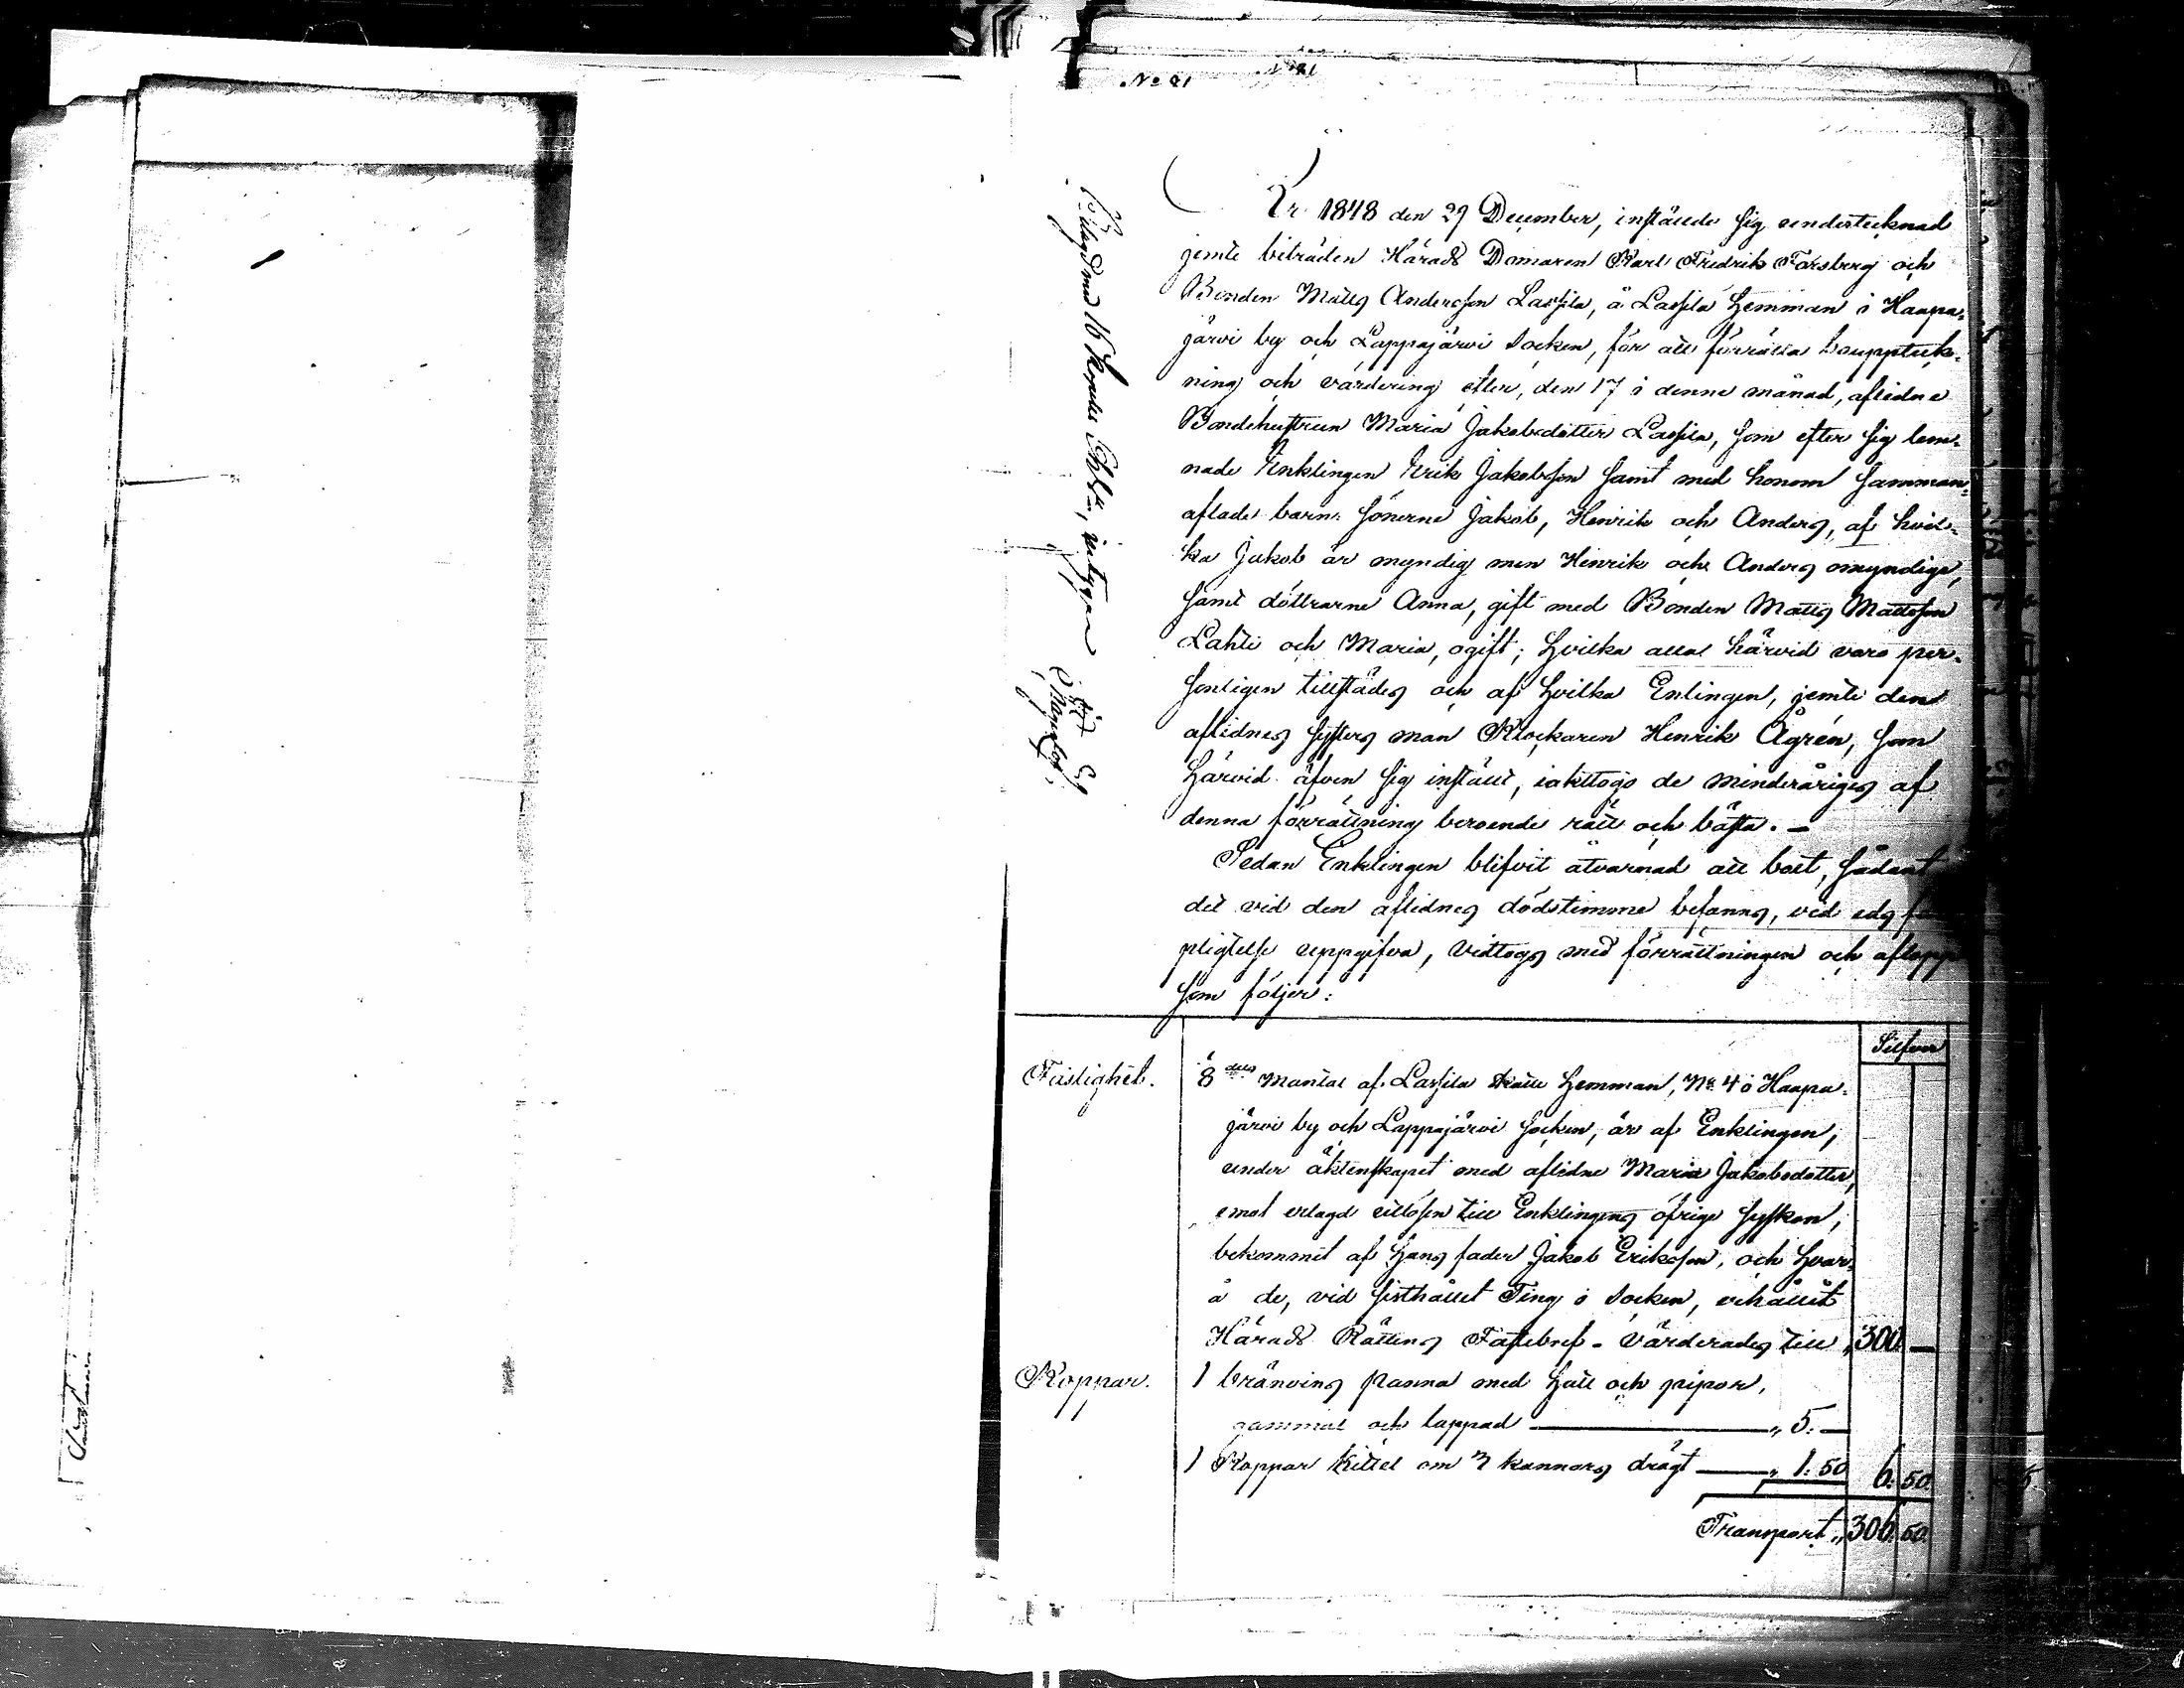 No 91
År 1848 den 29 December, inställde sig undertecknad
jemte biträden Härads Domaren Karl Fredrik Forsberg och
Bonden Matts Andersson Lassila, å Lassila hemman i Haapa-
järvi by och Lappajärvi Socken, för att förrätta bouppteck-
ning och värdering efter, den 17 i denne månad, aflidne
Bondehustrun Maria Jakobsdotter Lassila, som efter sig lem-
nade Enklingen Erik Jakobsson samt med honom samman-
aflade barn: sönerne Jakob, Henrik och Anders, af hvil-
ka Jakob är myndig men Henrik och Anders omyndige,
samt döttrarne Anna, gift med Bonden Matts Mattsson
Lahti och Maria, ogift; hvilka allal härvid voro per-
sonligen tillstädes och af hvilka Enlingen, jemte den
aflidnes systers man Klockaren Henrik Ågrén, som
härvid äfven sig inställt, iakttogo de minderåriges af
denna förrättning beroende rätt och bästa. —
Sedan Enklingen blifvit åtvarnad att boet, sådant
det vid den aflidnes dödstimma befanns, vid eds
pligtelse uppgifva, vidtogs med förrättningen och aflopp
som följer:
Silfver
Fastighet. 8 dels mantal af Lassila skatte hemman, No 4 i Haapa-
järvi by och Lappajärvi socken, är af Enklingen,
under äktenskapet med aflidne Maria Jakobsdotter,
emot erlagd utlösen till Enklingens öfrige syskon,
bekommit af hans fader Jakob Eriksson, och hvar-
å de, vid sisthållet Ting i Socken, erhållit
Härads Rättens Fastebref - Värderades till „ 300 —
Koppar. 1 bränvins panna med hatt och pipor,
gammal och lappad — „ 5. —
1 Koppar kittel om 3 kannors drägt — „ 1. 50 6. 50.
Transport „ 306. 50.